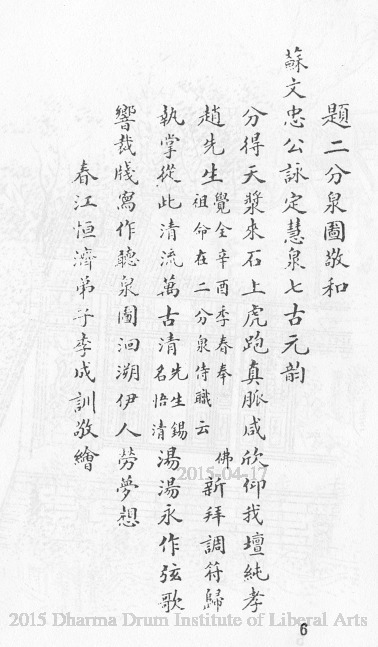 題二分泉圖敬和
蘇文忠公詠定慧泉七古元韵
分得天漿來石上虎跑真脈咸欣仰我壇純孝
趙先生覺全辛酉季春奉 佛祖命在二分泉侍職云新拜調符歸
執掌從此清流萬古清先生錫名悟清湯湯永作弦歌
響裁牋寫作聽泉圖洄溯伊人勞夢想
春江恒濟弟子李成訓敬繪
2015-04-17
2015 Dharma Drum Institute of Liberal Arts
6